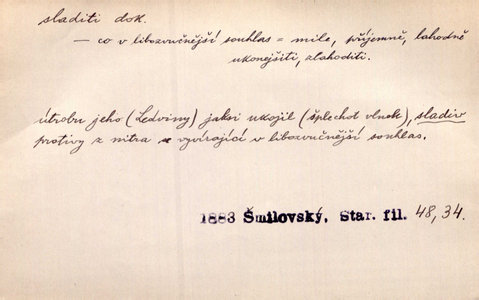 sladiti dok.
— co v libozvučnější souhlas = mile, příjemně, lahodně
ukonejšiti, zlahoditi.
útrobu jeho (Ledviny) jaksi ukojil (šplechot vlnek), sladiv
protivy z nitra se vyvírající v libozvučnější souhlas.
1883 Šmilovský, Star. fil. 48,34.